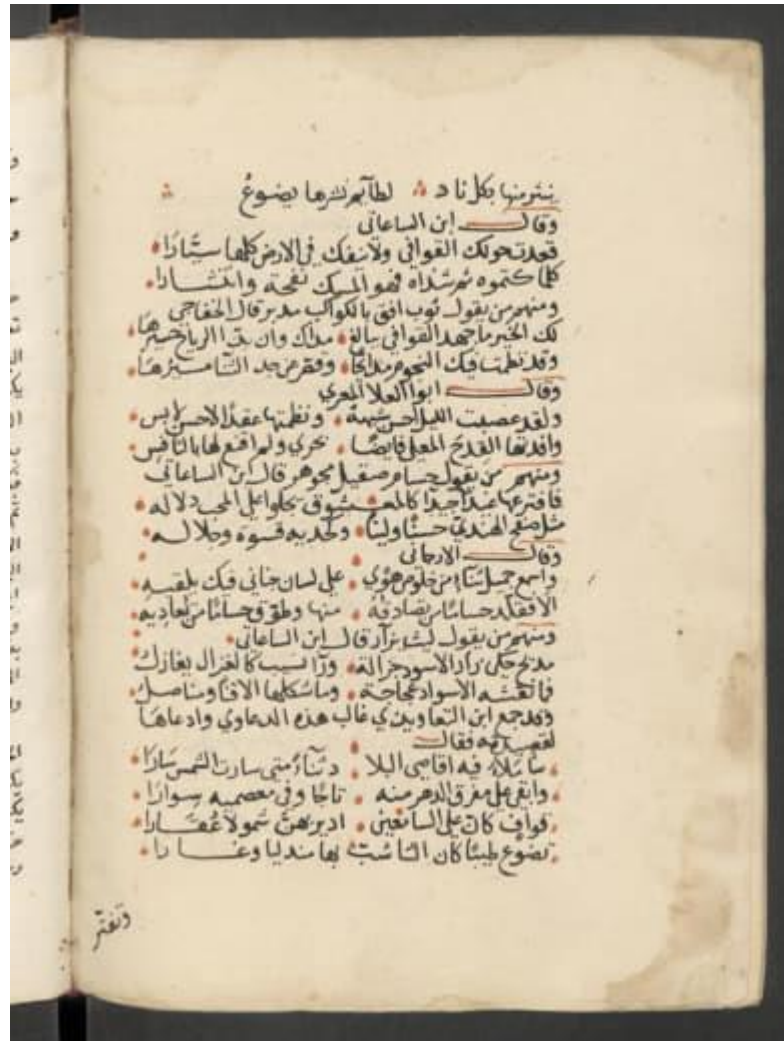 ينثر منها بكل ناد لطائم نشرها يضوع
وقال ابن الساعاتي
قعدت حولك القوافي ولا تنفك في الارض كلها سيارا
كلما كتموه نم شذاه فهو المسك نفحة وانتشارا
ومنهم من يقول ثوب افق بالكواكب مدير قال الخفاجي
لك الخير ما جهد القوافي ببالغ مداك وان بذ الرياح حسيرها
وقد نظمت فيك النجوم مدائحا وقصر عن حد الثنا مسيرها
وقال ابوا العلا المعري
ولقد غصبت الليل احسن شهبة ونظمتها عقدا لاحسن لابس
وافدتها القدح المعلى فايضا ولم اقنع لها بالنافس
ومنهم من يقول حسام صقيل مجوهر قال ابن الساعاتي
كالمعشوق يجلوا على المحب دلاله
مثل صفح الهندي حسنا ولينا ولحديه قسوة وجلاله
وقال الارجاني
واسمع جميل ثناء من على لسان جناني فيك يلقيه
منها وطوق حسانا من
ومنهم من يقول ليث يزأر قال ابن الساعاتي
مدح حكى زأر الاسود جزالة ونسيب كالغزال يغازل
الاسواد عجاجة وما شكلها الا قنا ومناصل
وقد جمع ابن التعاويذي غالب هذه الدعاوي وادعاها
لقصيدته فقال
سأملأ فيه اقاصي البلا د ثناء متى سارت الشمس سارا
وابقى على مفرق الدهر منه تاجا وفي معصميه سوارا
قواف كان على السامعين ادير بهن شمولا عقارا
تضوع طيبا كان الثنا شب بها مندليا وغارا
وتفتر